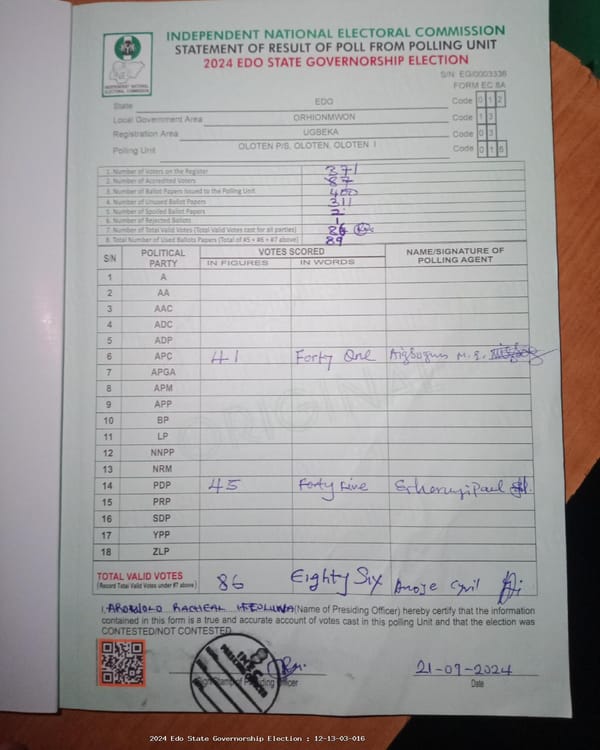 INDEPENDENT NATIONAL ELECTORAL COMMISSION
STATEMENT OF RESULT OF POLL FROM POLLING UNIT
2024 EDO STATE GOVERNORSHIP ELECTION
INDEPENDENT NATIONAL ELECTORAL COMMISSION
S/N: EG/0003336
FORM EC 8A
State EDO Code 0 1 2
Local Government Area ORHIONMWON Code 1 3
Registration Area UGBEKA Code 0 3
Polling Unit OLOTEN P/S, OLOTEN, OLOTEN I Code 0 1 6
1. Number of Voters on the Register 371
2. Number of Accredited Voters 87
3. Number of Ballot Papers Issued to the Polling Unit 400
4. Number of Unused Ballot Papers 311
5. Number of Spoiled Ballot Papers 2
6. Number of Rejected Ballots 1
7. Number of Total Valid Votes (Total Valid Votes cast for all parties) 86
8. Total Number of Used Ballots Papers (Total of #5 + #6 + #7 above) 89
S/N POLITICAL PARTY VOTES SCORED NAME/SIGNATURE OF POLLING AGENT
IN FIGURES IN WORDS
1 A
2 AA
3 AAC
4 ADC
5 ADP
6 APC 41 Forty One
7 APGA
8 APM
9 APP
10 BP
11 LP
12 NNPP
13 NRM
14 PDP 45 Forty Five Paul
15 PRP
16 SDP
17 YPP
18 ZLP
ORIGINAL
TOTAL VALID VOTES 86 Eighty Six
(Record Total Valid Votes under #7 above)
I, RACHEAL (Name of Presiding Officer) hereby certify that the information
contained in this form is a true and accurate account of votes cast in this polling Unit and that the election was
CONTESTED/NOT CONTESTED
INEC
21-09-2024
Sign/Stamp of Presiding Officer Date
2024 Edo State Governorship Election : 12-13-03-016